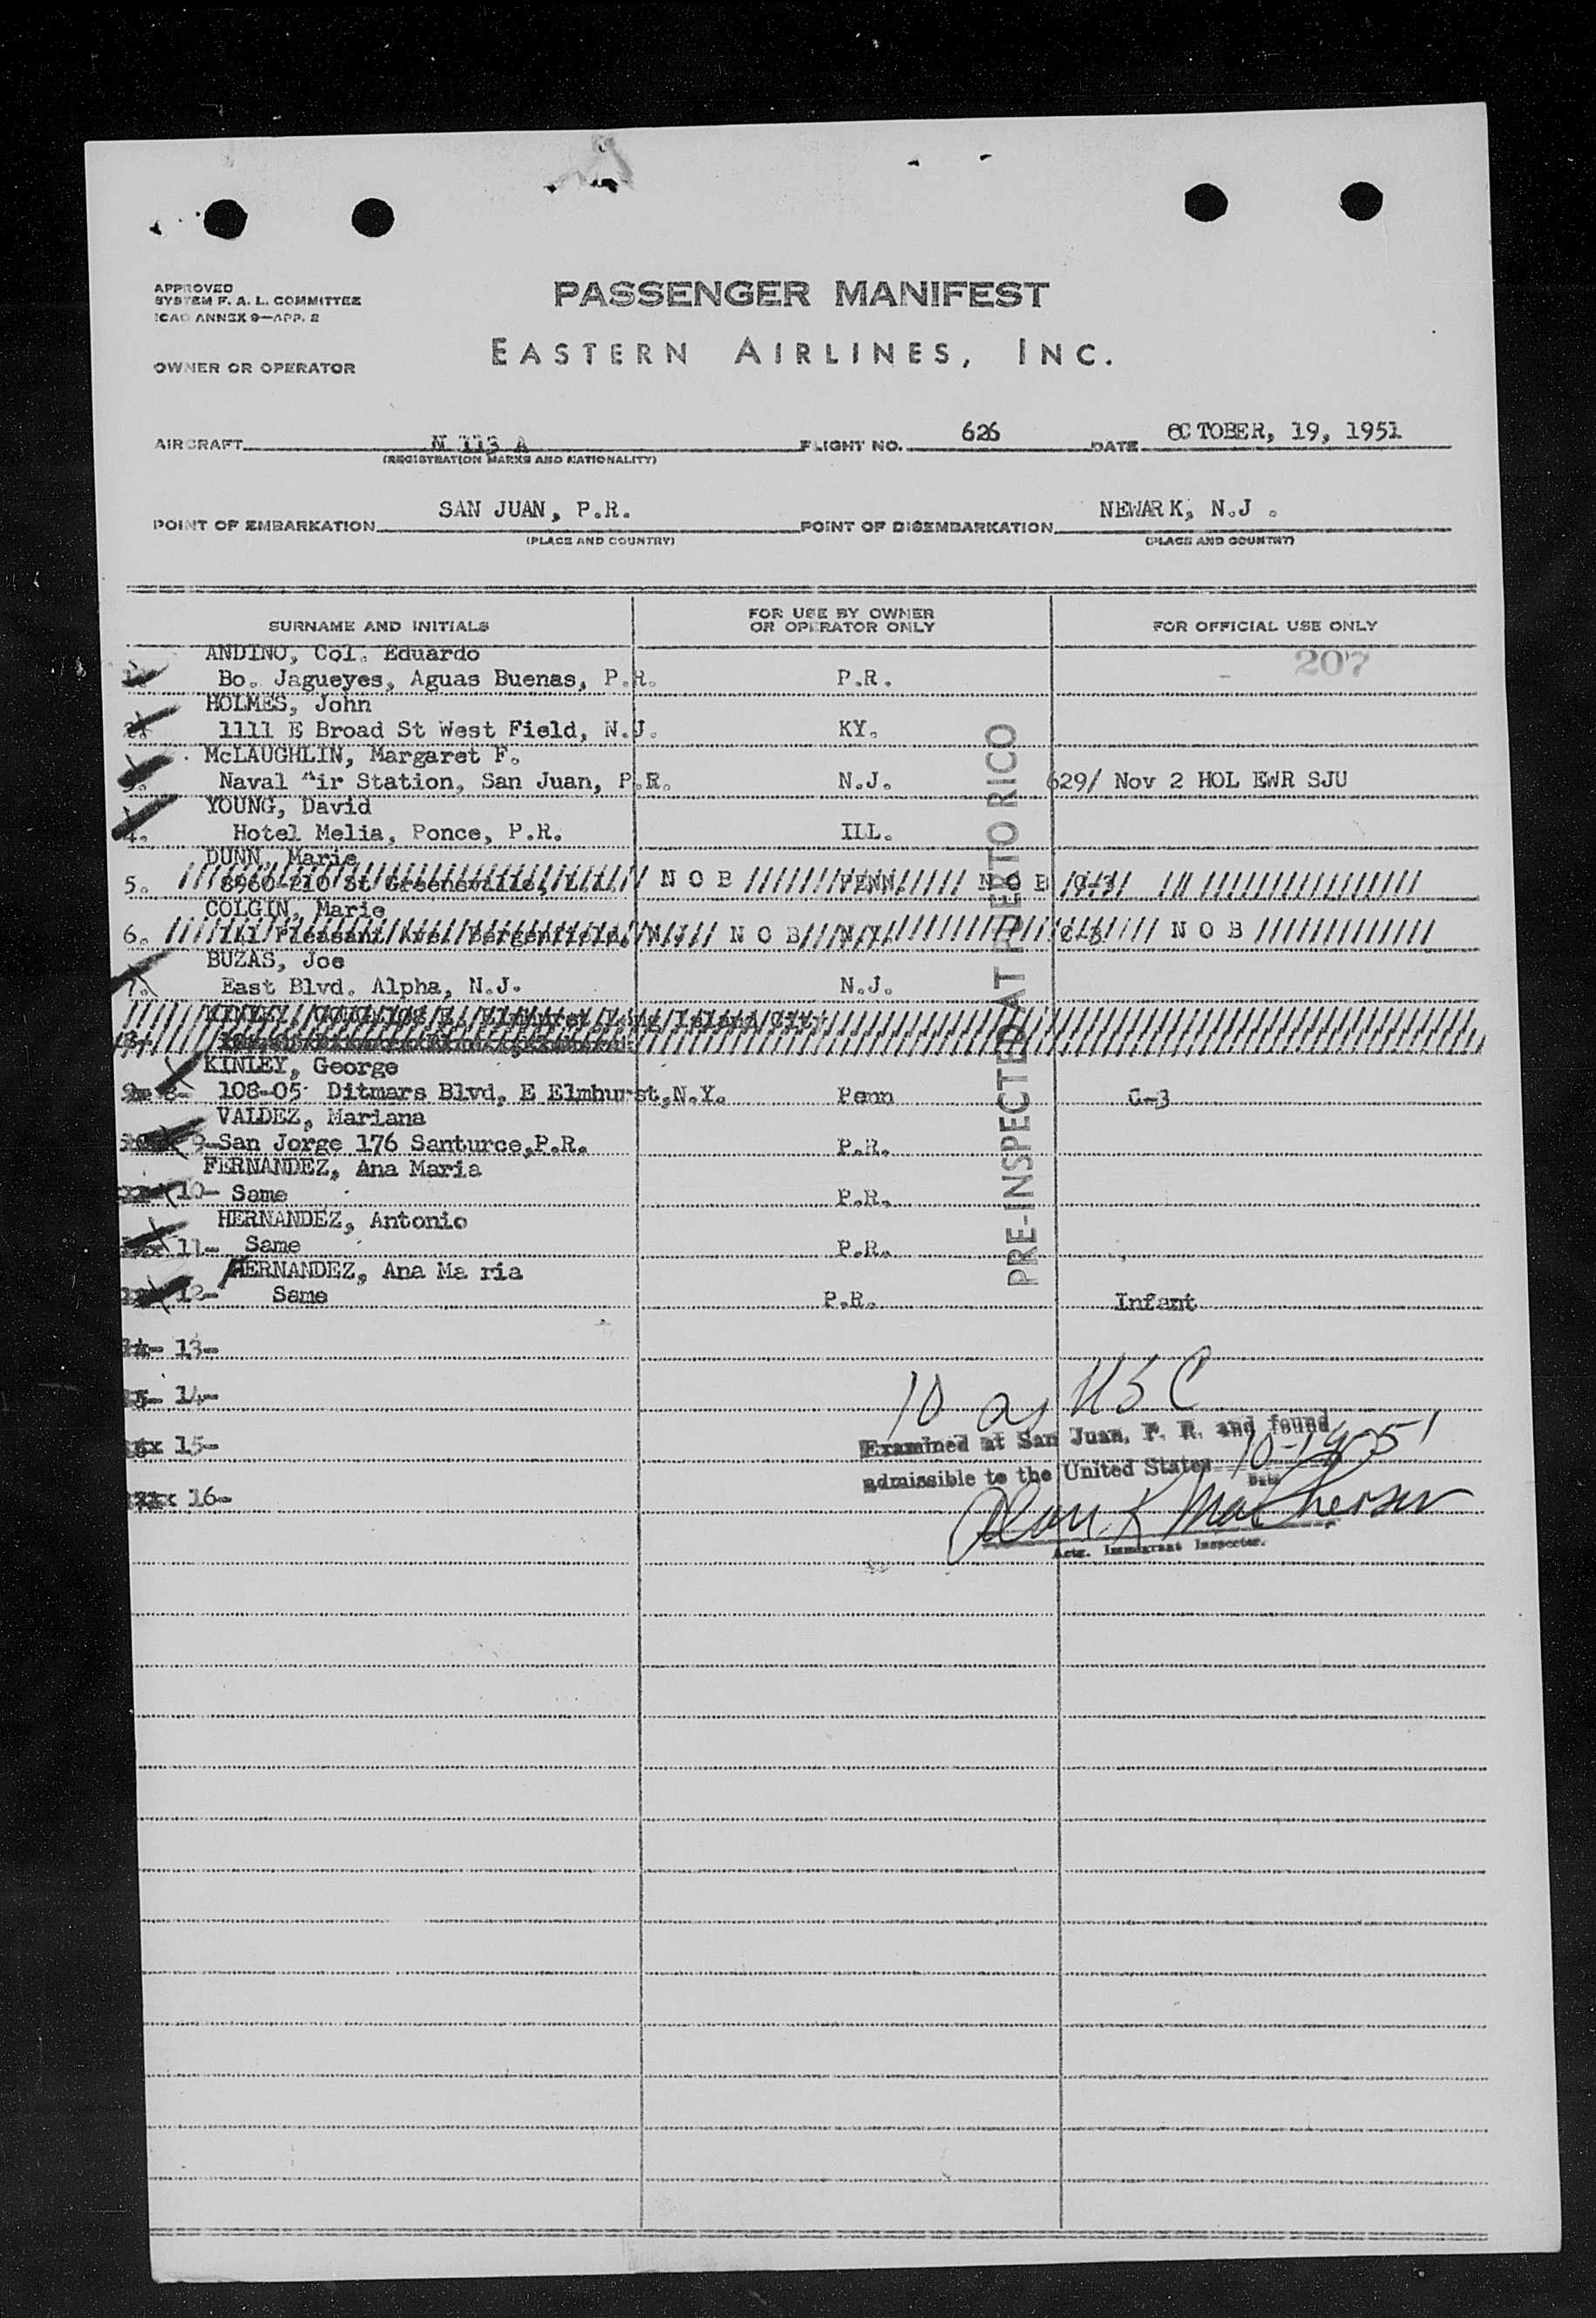 APPROVED
SYSTEM F. A. L. COMMITTEE
ICAO ANNEX 9—APP. 2
PASSENGER MANIFEST
OWNER OR OPERATOR
EASTERN AIRLINES, INC.
AIRCRAFT N 113 A FLIGHT NO. 626 DATE OCTOBER, 19, 1951
(REGISTRATION MARKS AND NATIONALITY)
POINT OF EMBARKATION SAN JUAN, P.R. POINT OF DISEMBARKATION NEWARK, N.J.
(PLACE AND COUNTRY) (PLACE AND COUNTRY)
SURNAME AND INITIALS FOR USE BY OWNER OR OPERATOR ONLY FOR OFFICIAL USE ONLY
207
ANDINO, Col. Eduardo
1. Bo. Jagueyes, Aguas Buenas, P.R. P.R.
HOLMES, John
2. 1111 E Broad St West Field, N.J. KY.
McLAUGHLIN, Margaret F.
3. Naval Air Station, San Juan, P.R. N.J. 629/ Nov 2 HOL EWR SJU
YOUNG, David
4. Hotel Melia, Ponce, P.R. ILL.
DUNN, Marie
5. 8960 210 St N O B PENN. N O B
COLGIN, Marie
6. 141 Pleasant Ave. Bergenfield, N.J. N O B N.Y. N O B
BUZAS, Joe
7. East Blvd. Alpha, N.J. N.J.
KINLEY,
KINLEY, George
8- 108-05 Ditmars Blvd, E Elmhurst,N.Y. Penn G-3
VALDEZ, Mariana
9- San Jorge 176 Santurce,P.R. P.R.
FERNANDEZ, Ana Maria
10- Same P.R.
HERNANDEZ, Antonio
11- Same P.R.
HERNANDEZ, Ana Ma ria
12- Same P.R. Infant
13-
14-
15-
16-
PRE-INSPECTED AT PUERTO RICO
10 as USC
Examined at San Juan, P. R. and found
admissible to the United States 10-19-51
Date
Actg. Immigrant Inspector.